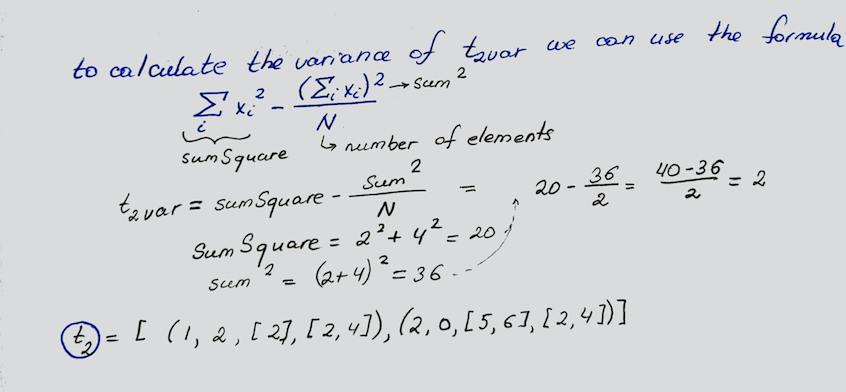 to calculate the variance of t₂var we can use the formula
∑ᵢ xᵢ² - (∑ᵢ xᵢ)² / N → sum²
sumSquare ↳ number of elements
t₂var = sumSquare - sum² / N = 20 - 36/2 = (40-36)/2 = 2
SumSquare = 2² + 4² = 20
sum² = (2+4)² = 36
t₂ = [ (1, 2, [2], [2, 4]), (2, 0, [5, 6], [2, 4])]